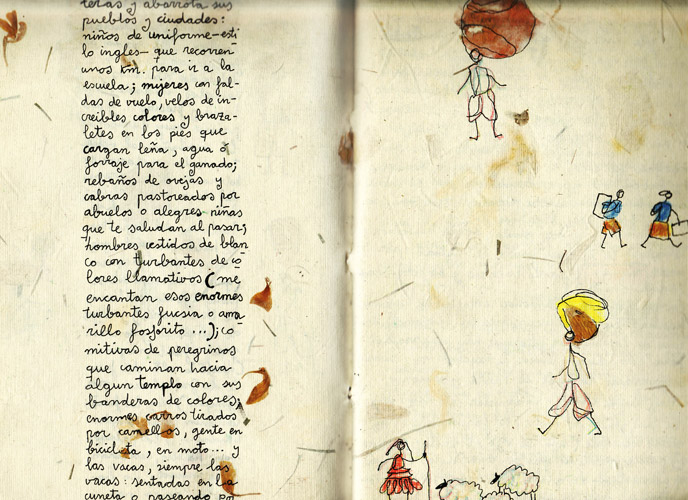 teras y abarrota sus
pueblos y ciudades:
niños de uniforme -esti
lo ingles- que recorren
unos km. para ir a la
escuela; mujeres con fal-
das de vuelo, velos de in-
creibles colores y braza-
letes en los pies que
cargan leña, agua ó
forraje para el ganado;
rebaños de ovejas y
cabras pastoreados por
abuelos o alegres niñas
que te saludan al pasar;
hombres vestidos de blan
co con turbantes de co
lores llamativos (me
encantan esos enormes
turbantes fucsia o ama
rillo fosforito ...); co
mitivas de peregrinos
que caminan hacia
algun templo con sus
banderas de colores;
enormes carros tirados
por camellos, gente en
bicicleta, en moto... y
las vacas, siempre las
vacas: sentadas en la
cuneta o paseando por